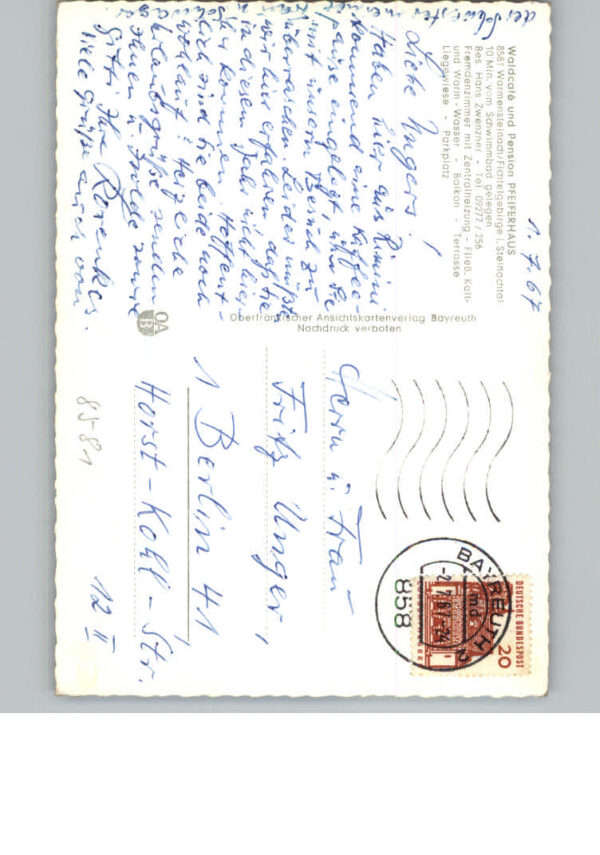 Waldcafé und Pension PFEIFERHAUS
8581 Warmensteinach/Fichtelgebirge i. Steinachtal
10 Min. vom Schwimmbad gelegen
Bes. Hans Zwenzner - Tel. 09277 / 256
Fremdenzimmer mit Zentralheizung - Fließ. Kalt-
und Warm-Wasser - Balkon - Terrasse
Liegewiese - Parkplatz
1. 7. 67
Liebe Ungers!
Haben hier aus Rimini
kommend eine Kaffee-
pause eingelegt, um Sie
mit unserem Besuch zu
überraschen. Leider mußten
wir hier erfahren, daß Sie
in diesem Jahr nicht hier-
her kommen. Hoffent-
lich sind Sie beide noch
wohlauf! Herzliche
Urlaubsgrüße senden
Ihnen u. Hulde sowie
Gitti Ihre
Viele Grüße auch von
der Schwester meiner
Schwager
Oberfränkischer Ansichtskartenverlag Bayreuth
Nachdruck verboten
OA
B
Herrn u. Frau
Fritz Unger,
1 Berlin 41
Horst-Kohl-Str.
12 II
85-81
DEUTSCHE BUNDESPOST
20
BAYREUTH 2
md
-2.7.67-24
858